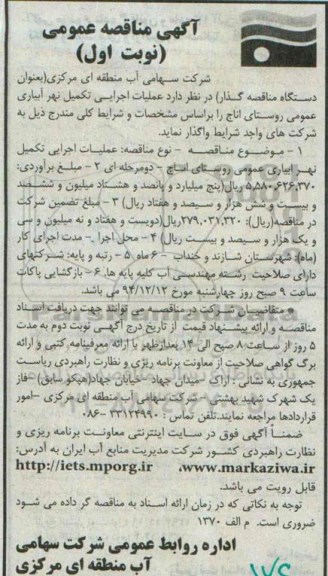 آگهی مناقصه عمومی
(نوبت اول)
شرکت سهامی آب منطقه ای مرکزی(بعنوان
دستگاه مناقصه گذار) در نظر دارد عملیات اجرایی تکمیل نهر آبیاری
عمومی روستای اناج را براساس مشخصات و شرایط کلی مندرج ذیل به
شرکت های واجد شرایط واگذار نماید.
۱ – موضوع مناقصه – نوع مناقصه: عملیات اجرایی تکمیل
نهر آبیاری عمومی روستای اناج – دومرحله ای ۲ – مبلغ برآوردی:
۵,۵۸۰,۶۲۶,۳۷۰ ریال(پنج میلیارد و پانصد و هشتاد میلیون و ششصد
و بیست و شش هزار و سیصد و هفتاد ریال) ۳ – مبلغ تضمین شرکت
در مناقصه(ریال): ۲۷۹,۰۳۱,۳۲۰ریال(دویست و هفتاد و نه میلیون و سی
و یک هزار و سیصد و بیست ریال) ۴ – محل اجرا – مدت اجرای کار
(ماه): شهرستان شازند و خنداب – ۶ ماه ۵ – رتبه و پایه: شرکتهای
دارای صلاحیت رشته مهندسی آب کلیه پایه ها ۶ – بازگشایی پاکات
ساعت ۹ صبح روز چهارشنبه مورخ ۹۴/۱۲/۱۲ می باشد.
متقاضیان شرکت در مناقصه می توانند جهت دریافت اسناد
مناقصه و ارائه پیشنهاد قیمت از تاریخ درج آگهی نوبت دوم به مدت
۵ روز از ساعت ۸ صبح الی ۱۴ بعدازظهر با ارائه معرفینامه کتبی و ارائه
برگ گواهی صلاحیت از معاونت برنامه ریزی و نظارت راهبردی ریاست
جمهوری به نشانی : اراک – میدان جهاد– خیابان جهاد(هپکو سابق) –فاز
یک شهرک شهید بهشتی – شرکت سهامی آب منطقه ای مرکزی –امور
قراردادها مراجعه نمایند.تلفن تماس : ۳۳۱۲۴۹۹۰ –۰۸۶
ضمناً آگهی فوق در سایت اینترنتی معاونت برنامه ریزی و
نظارت راهبردی کشور شرکت مدیریت منابع آب ایران به آدرس:
http://iets.mporg.ir ،www.markaziwa.ir
قابل رویت می باشد.
توجه به نکاتی که در زمان ارائه اسناد به مناقصه گر داده می شود
ضروری است. م الف ۱۳۷۰
اداره روابط عمومی شرکت سهامی
آب منطقه ای مرکزی